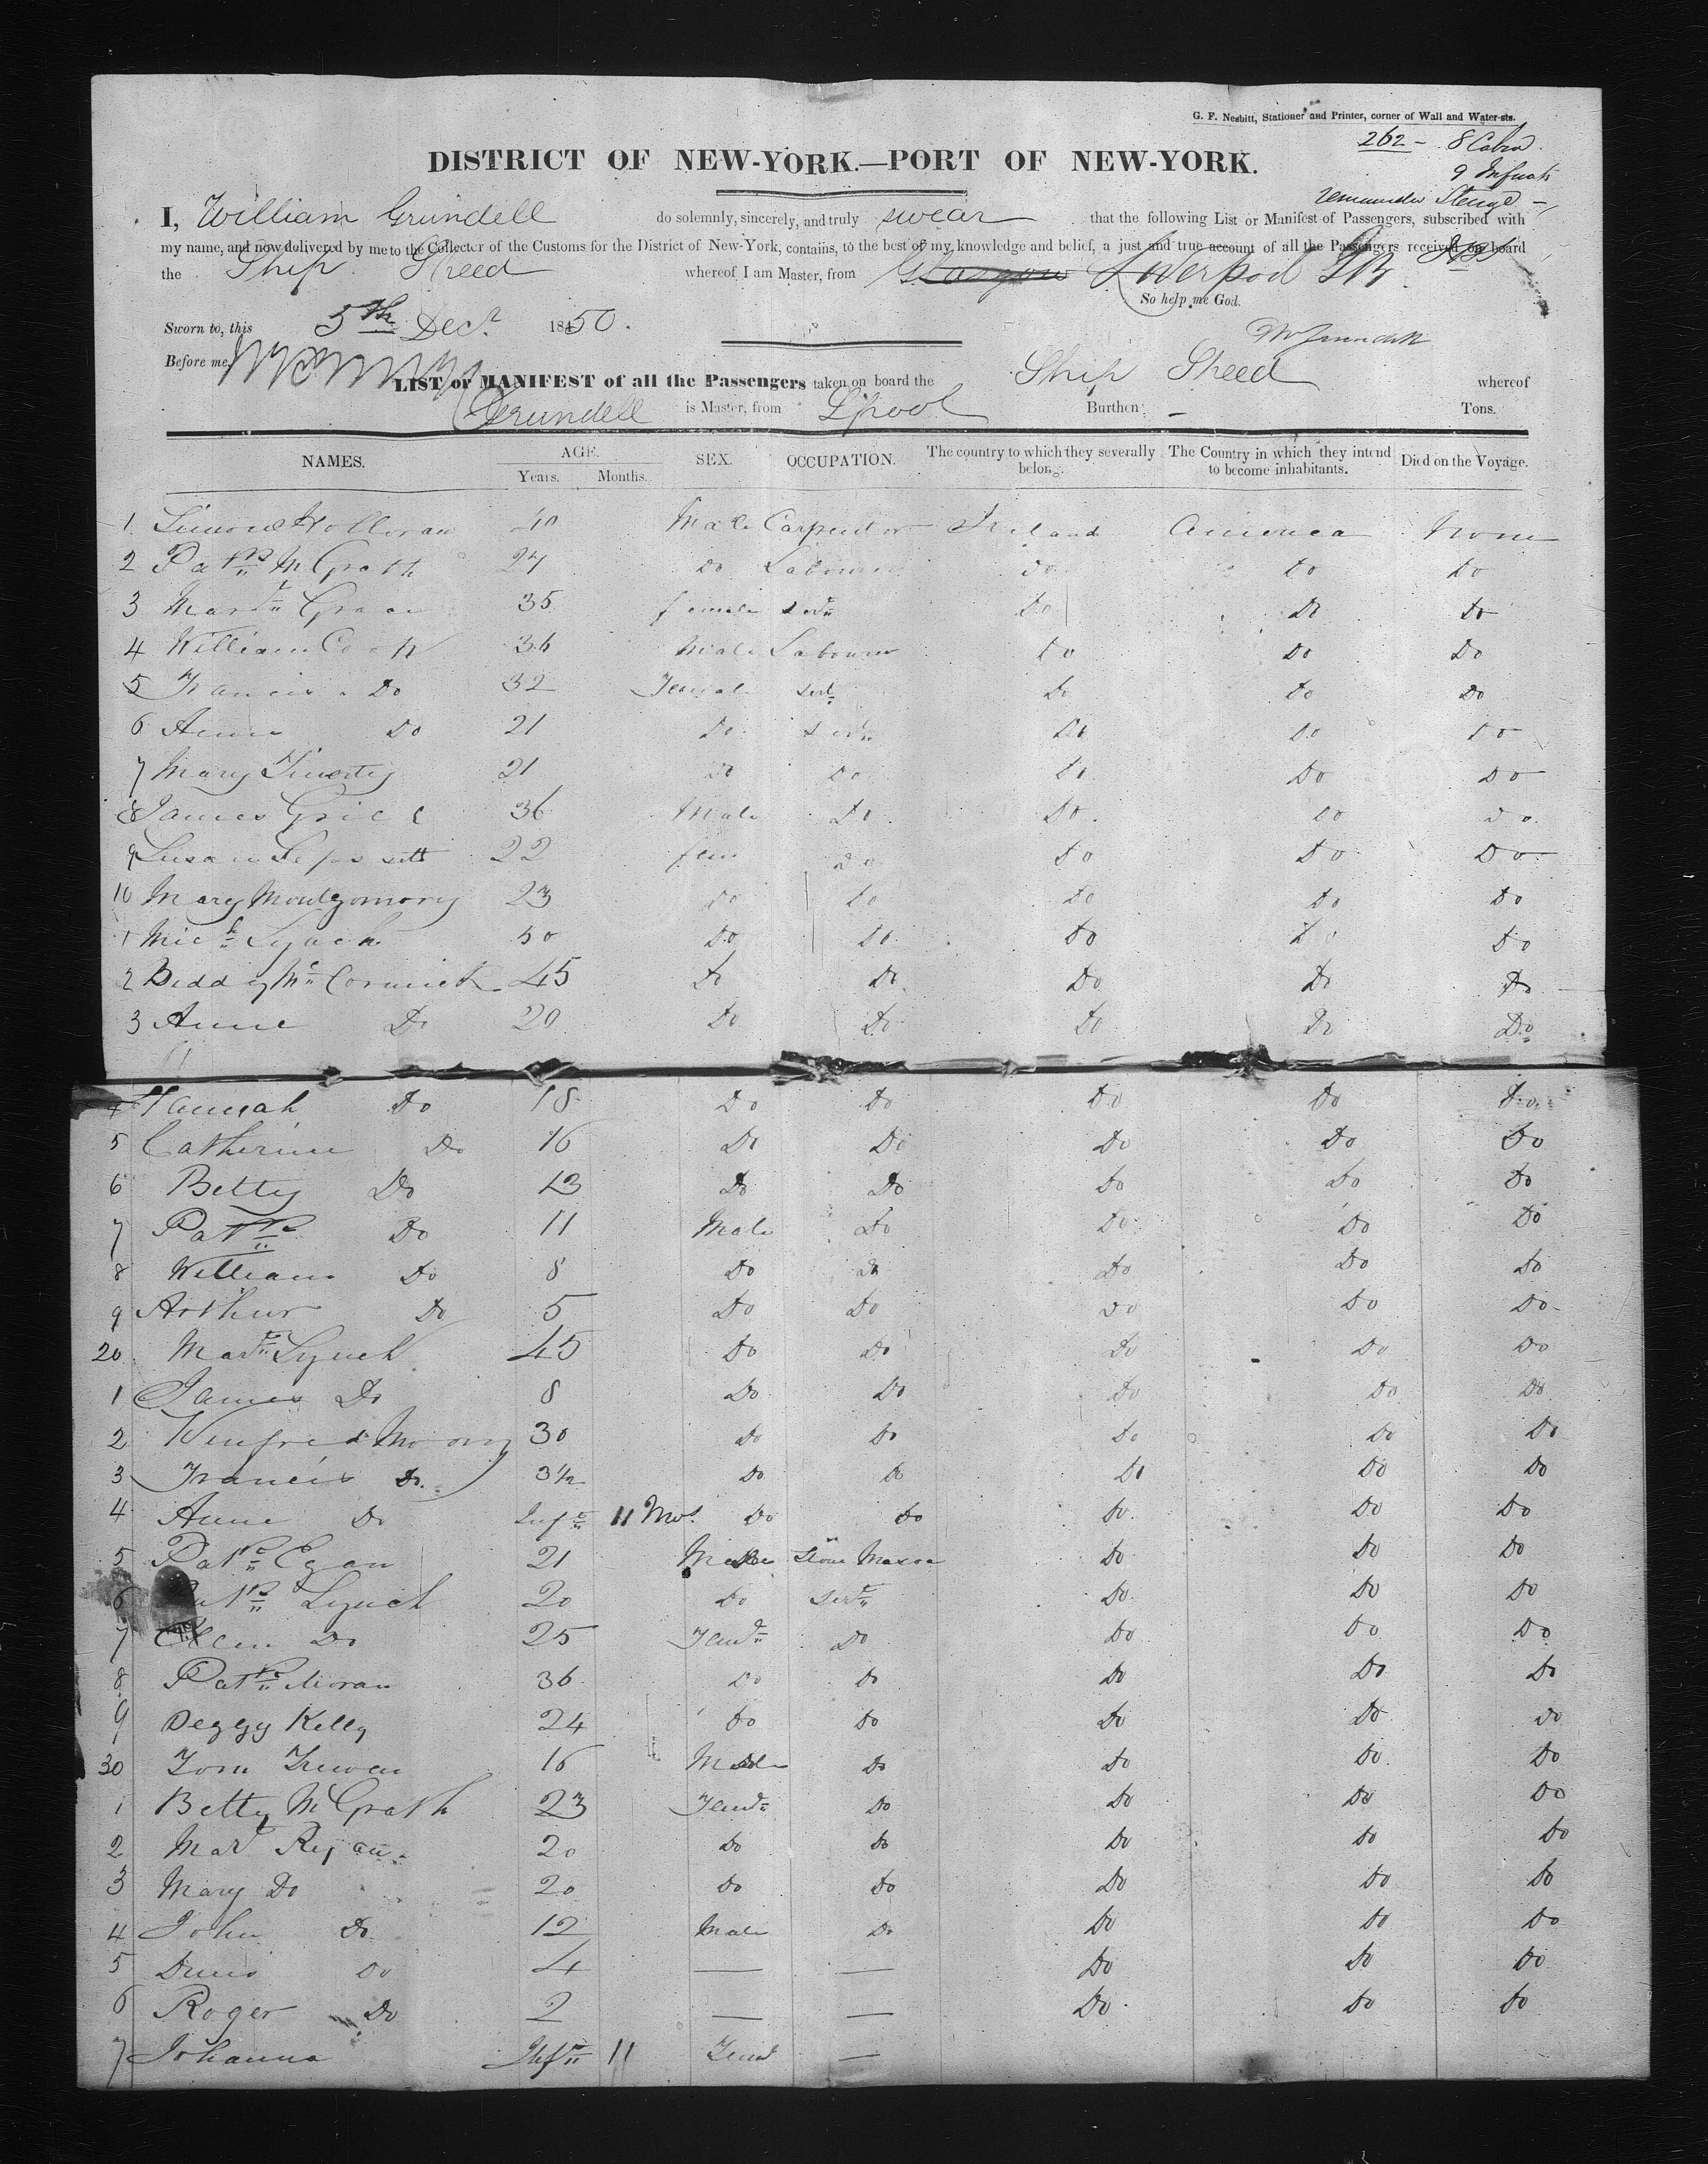 G. F. Nesbitt, Stationer and Printer, corner of Wall and Water-sts.
262 - 8 Cabin
9 Infants
remainder Steerage -
DISTRICT OF NEW-YORK.—PORT OF NEW-YORK.
I, William Grundell do solemnly, sincerely, and truly swear that the following List or Manifest of Passengers, subscribed with
my name, and now delivered by me to the Collector of the Customs for the District of New-York, contains, to the best of my knowledge and belief, a just and true account of all the Passengers received on board
the Ship Sheed whereof I am Master, from Glasgow Liverpool GB
So help me God.
Sworn to, this 5th Decr 1850.
Before me,
LIST or MANIFEST of all the Passengers taken on board the Ship Sheed whereof
Grundell is Master, from L'pool Burthen - Tons.
NAMES. AGE. SEX. OCCUPATION. The country to which they severally belong. The Country in which they intend to become inhabitants. Died on the Voyage.
Years. Months.
1 Simon Holloran 40 Male Carpenter Ireland America None
2 Patk McGrath 27 Do Labourer Do Do Do
3 Margt Grace 35 female servt Do Do Do
4 William Cook 36 Male Labourer Do Do Do
5 Francis Do 32 Female servt Do Do Do
6 Anne Do 21 Do servt Do Do Do
7 Mary 21 Do Do Do Do Do
8 James Grice 36 Male Do Do Do Do
9 Susan 22 fem Do Do Do Do
10 Mary Montgomory 23 Do Do Do Do Do
1 Mich Lynch 50 Do Do Do Do Do
2 Beddy Mc Cormick 45 Do Do Do Do Do
3 Anne Do 20 Do Do Do Do Do
4 Hannah Do 18 Do Do Do Do Do
5 Catherine Do 16 Do Do Do Do Do
6 Betty Do 13 Do Do Do Do Do
7 Patk Do 11 Male Do Do Do Do
8 William Do 8 Do Do Do Do Do
9 Arthur Do 5 Do Do Do Do Do
20 Mart Lynch 45 Do Do Do Do Do
1 James Do 8 Do Do Do Do Do
2 Winfred 30 Do Do Do Do Do
3 Francis Do. 3½ Do Do Do Do Do
4 Anne Do Inft 11 Mos. Do Do Do Do Do
5 Patk Egan 21 Male Stone Mason Do Do Do
6 Patk Lynch 20 Do servt Do Do Do
7 Ellen Do 25 Feme Do Do Do Do
8 Patk Moran 36 Do Do Do Do Do
9 Peggy Kelly 24 Do Do Do Do Do
30 Tom 16 Male Do Do Do Do
1 Betty McGrath 23 Feme Do Do Do Do
2 Mart Ryan 20 Do Do Do Do Do
3 Mary Do 20 Do Do Do Do Do
4 John Do 12 Male Do Do Do Do
5 Denis Do 4 — — Do Do Do
6 Roger Do 2 — — Do Do Do
7 Johanna Inft 11 Feme —